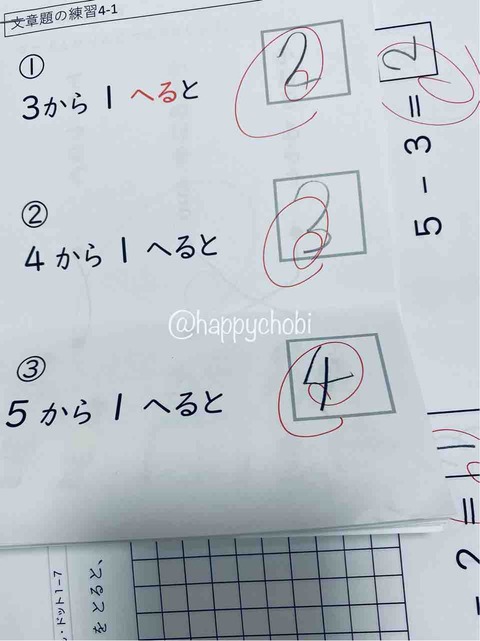 文章題の練習4-1
①
3から1へると
2
②
4から1へると
3
③
5から1へると
4
@happychobi
5-3=2
-2=1
ドット1-7